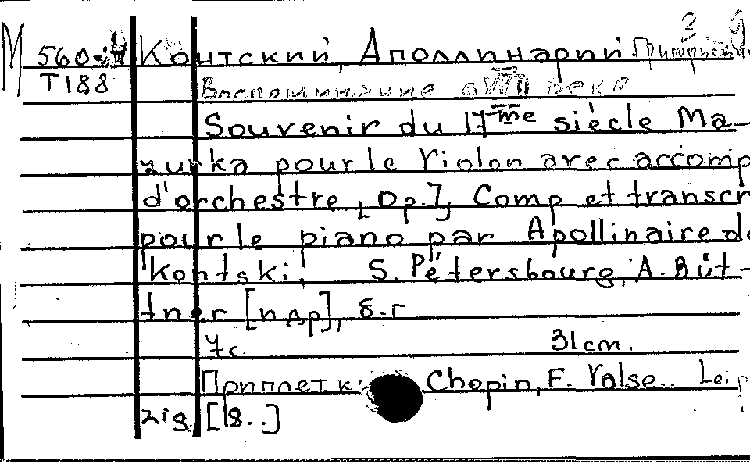 М 560-
Т188
Контский, Аполлинарий
Воспоминание о XVII века
Souvenir du 17me siècle Ma-
zurka pour le Violon avec accomp
d'orchestre, [Op.], Comp et transcr
pour le piano par Apollinaire de
Kontski. S. Pétersbourg, A. Büt-
tner [пдр], б.г
7с. 31cm.
Приплетк Chopin, F. Valse.. Leip
zig [8..]